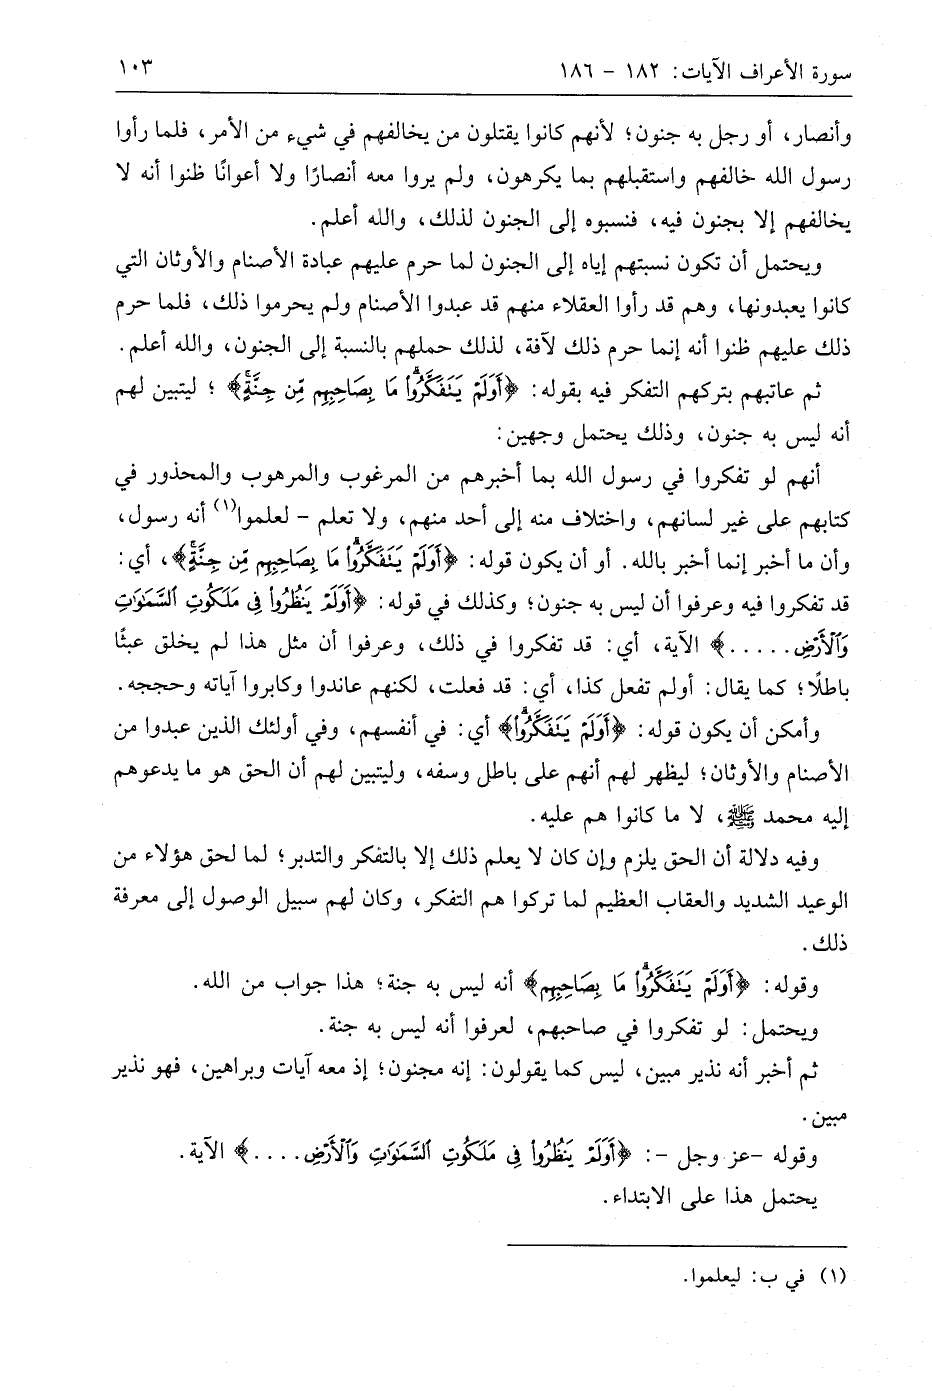 سورة الأعراف الآيات: ١٨٢ - ١٨٦ ١٠٣
وأنصار، أو رجل به جنون؛ لأنهم كانوا يقتلون من يخالفهم في شيء من الأمر، فلما رأوا
رسول الله خالفهم واستقبلهم بما يكرهون، ولم يروا معه أنصارًا ولا أعوانًا ظنوا أنه لا
يخالفهم إلا بجنون فيه، فنسبوه إلى الجنون لذلك، والله أعلم.
ويحتمل أن تكون نسبتهم إياه إلى الجنون لما حرم عليهم عبادة الأصنام والأوثان التي
كانوا يعبدونها، وهم قد رأوا العقلاء منهم قد عبدوا الأصنام ولم يحرموا ذلك، فلما حرم
ذلك عليهم ظنوا أنه إنما حرم ذلك لآفة، لذلك حملهم بالنسبة إلى الجنون، والله أعلم.
ثم عاتبهم بتركهم التفكر فيه بقوله: ﴿أَوَلَمْ يَتَفَكَّرُواْۗ مَا بِصَاحِبِهِم مِّن جِنَّةٍۚ﴾ ؛ ليتبين لهم
أنه ليس به جنون، وذلك يحتمل وجهين:
أنهم لو تفكروا في رسول الله بما أخبرهم من المرغوب والمرهوب والمحذور في
كتابهم على غير لسانهم، واختلاف منه إلى أحد منهم، ولا تعلم - لعلموا(١) أنه رسول،
وأن ما أخبر إنما أخبر بالله. أو أن يكون قوله: ﴿أَوَلَمْ يَتَفَكَّرُواْۗ مَا بِصَاحِبِهِم مِّن جِنَّةٍۚ﴾، أي:
قد تفكروا فيه وعرفوا أن ليس به جنون؛ وكذلك في قوله: ﴿أَوَلَمْ يَنظُرُواْ فِى مَلَكُوتِ ٱلسَّمَٰوَٰتِ
وَٱلْأَرْضِ.....﴾ الآية، أي: قد تفكروا في ذلك، وعرفوا أن مثل هذا لم يخلق عبثًا
باطلًا؛ كما يقال: أولم تفعل كذا، أي: قد فعلت، لكنهم عاندوا وكابروا آياته وحججه.
وأمكن أن يكون قوله: ﴿أَوَلَمْ يَتَفَكَّرُواْۗ﴾ أي: في أنفسهم، وفي أولئك الذين عبدوا من
الأصنام والأوثان؛ ليظهر لهم أنهم على باطل وسفه، وليتبين لهم أن الحق هو ما يدعوهم
إليه محمد ﷺ، لا ما كانوا هم عليه.
وفيه دلالة أن الحق يلزم وإن كان لا يعلم ذلك إلا بالتفكر والتدبر؛ لما لحق هؤلاء من
الوعيد الشديد والعقاب العظيم لما تركوا هم التفكر، وكان لهم سبيل الوصول إلى معرفة
ذلك.
وقوله: ﴿أَوَلَمْ يَتَفَكَّرُواْۗ مَا بِصَاحِبِهِم﴾ أنه ليس به جنة؛ هذا جواب من الله.
ويحتمل: لو تفكروا في صاحبهم، لعرفوا أنه ليس به جنة.
ثم أخبر أنه نذير مبين، ليس كما يقولون: إنه مجنون؛ إذ معه آيات وبراهين، فهو نذير
مبين.
وقوله -عز وجل -: ﴿أَوَلَمْ يَنظُرُواْ فِى مَلَكُوتِ ٱلسَّمَٰوَٰتِ وَٱلْأَرْضِ....﴾ الآية.
يحتمل هذا على الابتداء.
(١) في ب: ليعلموا.